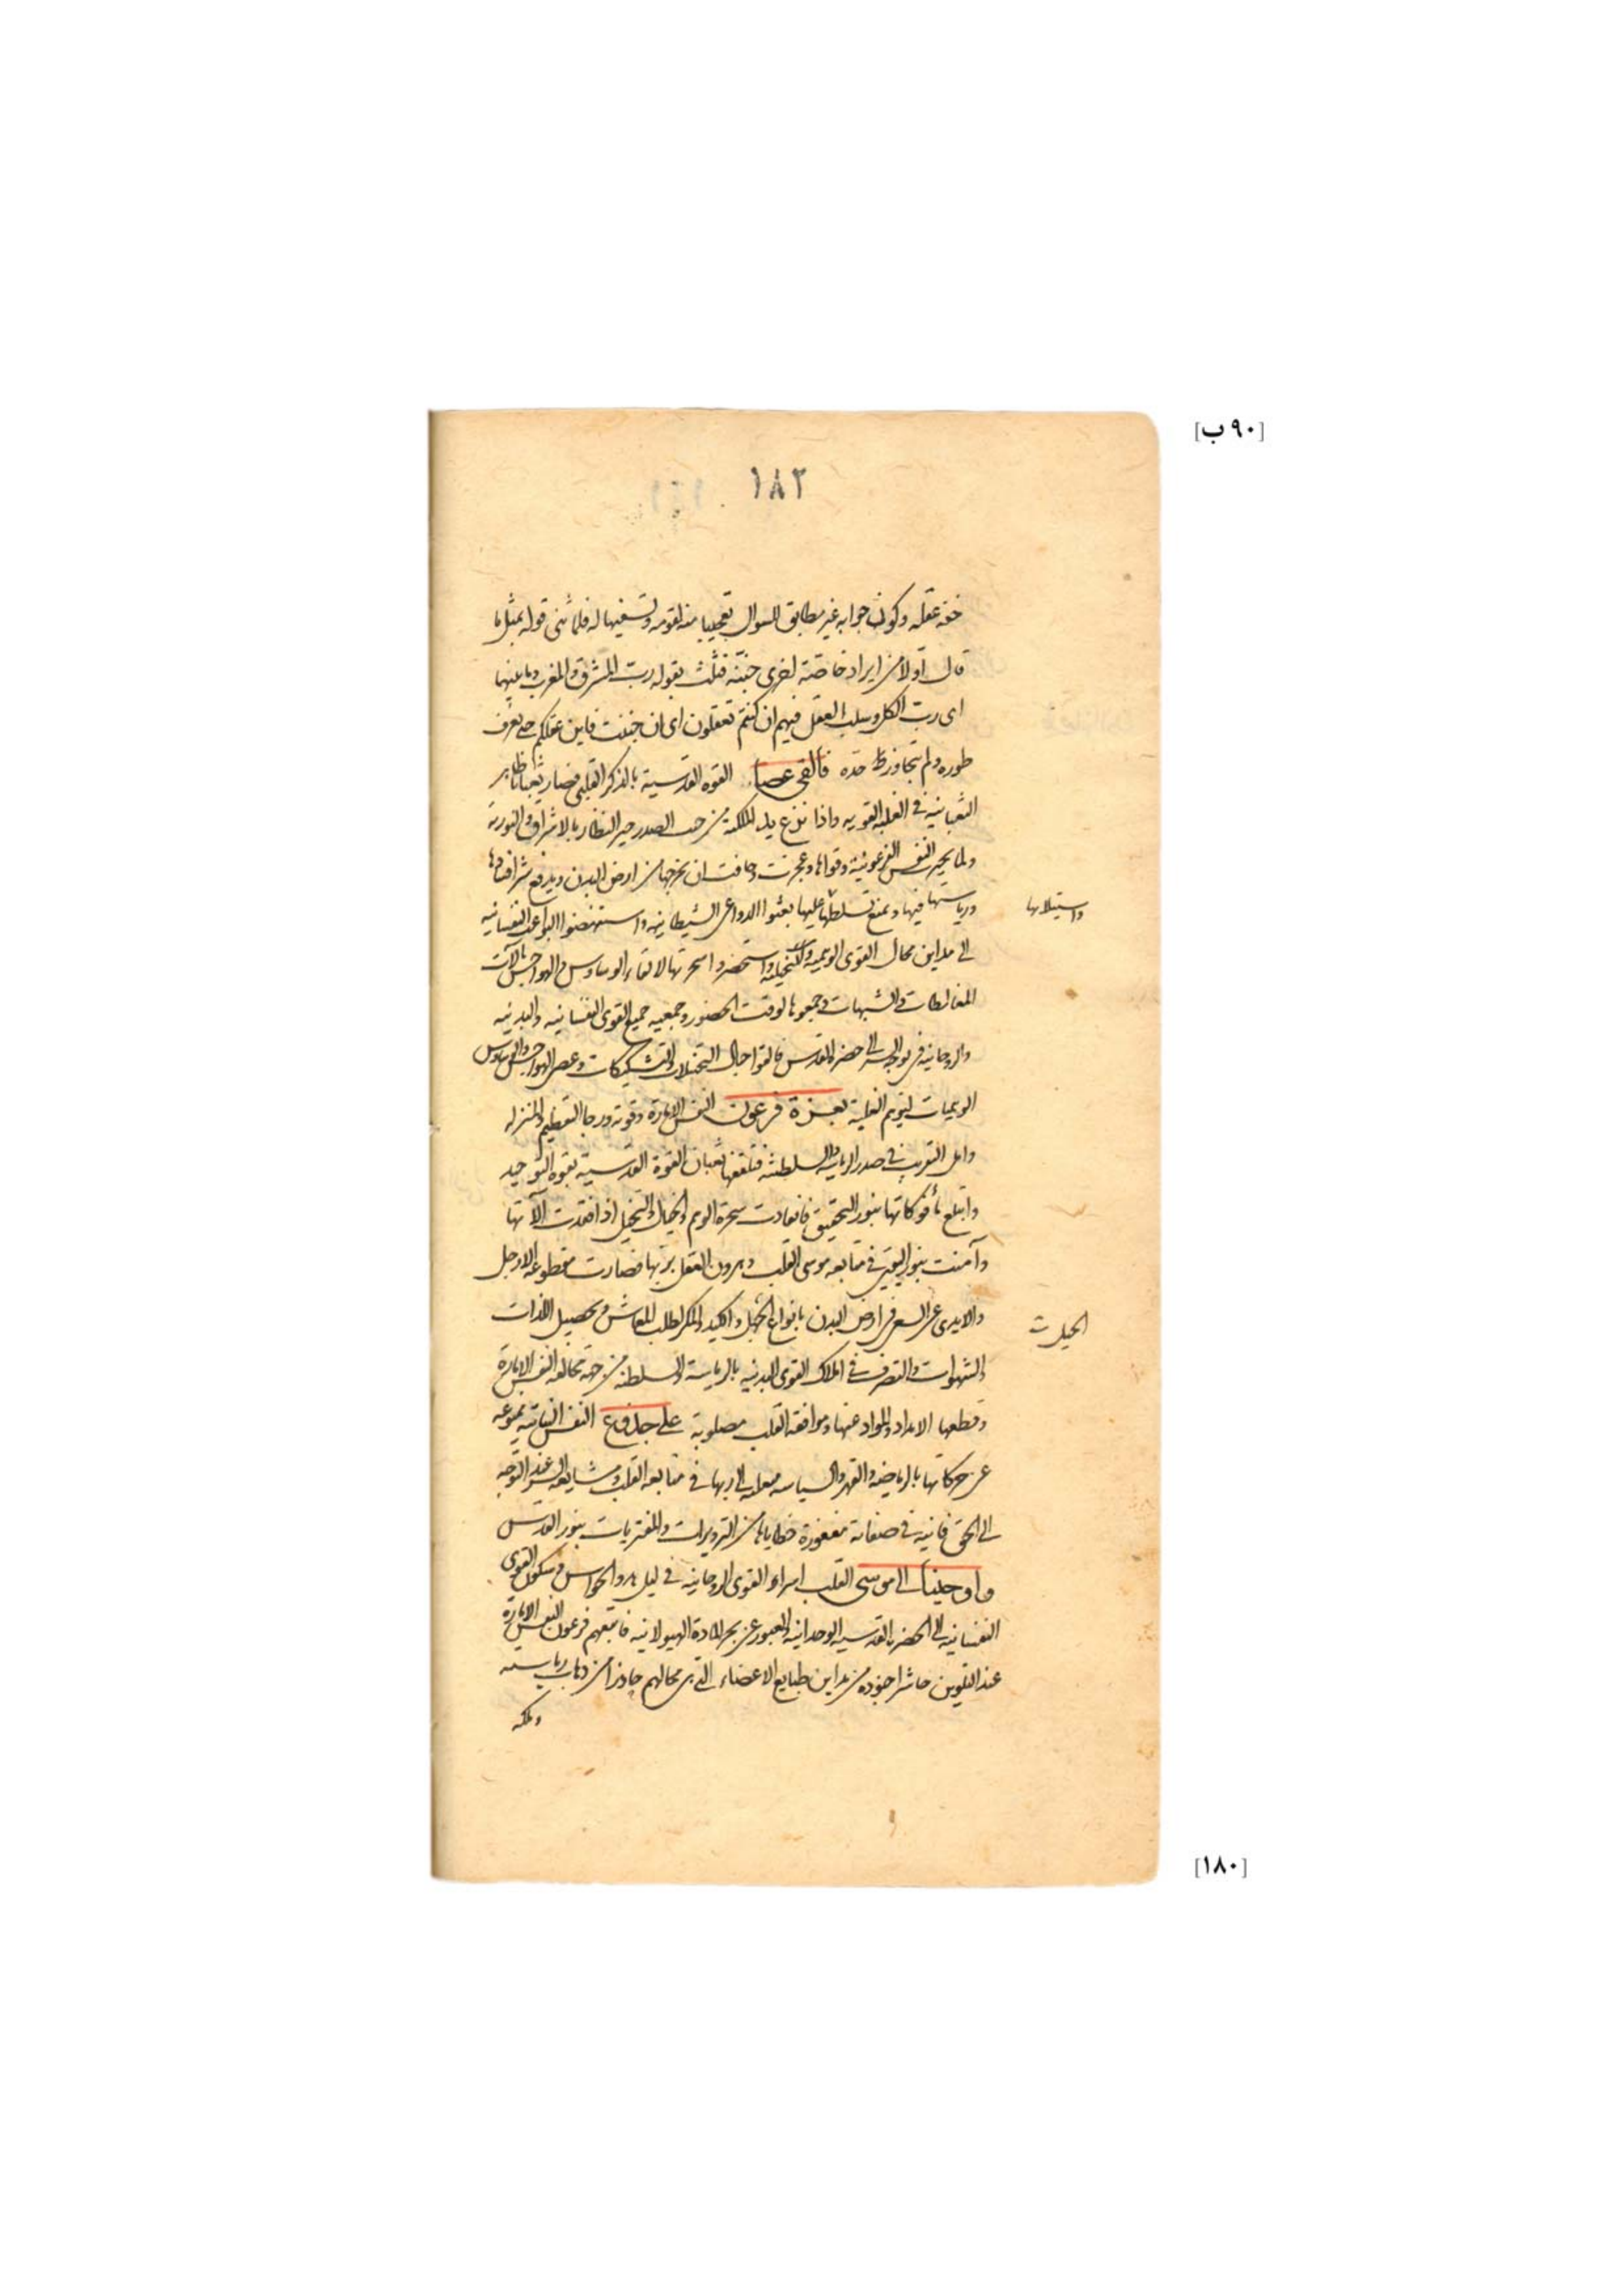 [٩٠ ب]
١٨٢
خفة عقله وكون جوابه غير مطابق للسؤال تعجيبا منه لقومه وتسفيها له فلما ثنى قوله بمثل ما
قال اولا من ايراد خاصة اخرى جننه فثلث بقوله رب المشرق والمغرب وما بينهما
اى رب الكل وسلب العقل فيهم ان كنتم تعقلون اى ان جننت فاين عقلكم حتى يعرف
طوره ولم يتجاوز حده فالقى عصا القوه القدسية بالذكر القلبى فصار ثعبانا ظاهر
الثعبانية فى الغلبة القويه واذا نزع يد الملكة من جيب الصدر حير النظار بالاشراق والنورية
ولما تحير النفس الفرعونية وقواها وعجزت وخافت ان يخرجها من ارض البدن ويدفع شر افسادها
ورياستها فيها ويمنع تسلطها عليها بعثوا الدواعى الشيطانيه واستنهضوا البواعث النفسانيه
واستيلائها
الى مداين محال القوى الوهميه والتخيلية واستحضروا سحرتها لالقاء الوساوس والهواجس بآلات
المغالطات والشبهات وجمعوها لوقت الحضور وجمعيه جميع القوى النفسانيه والبدنيه
والروحانيه فى توجه السر الى حضرة القدس فالقوا حبال التخيلات والتشكيكات وعصى الهواجس والوساوس
الوهميات لتوهم الغلبة بعزة فرعون النفس الامارة وقوته ورجا التعظيم والمنزله
وامل التقريب فى صدر الرياسة والسلطنة فتلقفها ثعبان القوة القدسية بقوه التوحيد
وابتلع مأفوكاتها بنور التحقيق فانقادت سحرة الوهم والخيال والتخيل اذا فقدت آلاتها
وآمنت بنور اليقين فى متابعه موسى القلب وهرون العقل بربها فصارت مقطوعه الارجل
والايدى عن السعى فى ارض البدن بانواع الحيل والكيد والمكر لطلب المعاش وتحصيل اللذات
الحيل
والشهوات والتصرف فى املاك القوى البدنيه بالرياسة والسلطنه من جهة مخالفة النفس الامارة
وقطعها الامداد والمواد عنها وموافقه القلب مصلوبة على جذوع النفس النباتيه ممنوعه
عن حركاتها بالرياضه والقهر والسياسه منقلبه الى ربها فى متابعه القلب ومشايعه السر عند التوجه
الى الحق فانيه فى صفاته مغفورة خطاياها من التزويرات والمفتريات بنور القدس
واوحينا الى موسى القلب اسراء القوى الروحانيه فى ليل هدو الحواس وسكون القوى
النفسانيه الى الحضرة القدسيه الوحدانيه والعبور عن بحر المادة الهيولانيه فاتبعهم فرعون النفس الامارة
عند التلوين حاشرا جنوده من مداين طبايع الاعضاء التى محالهم حاذرا من ذهاب رياسته
وملكه
[١٨٠]